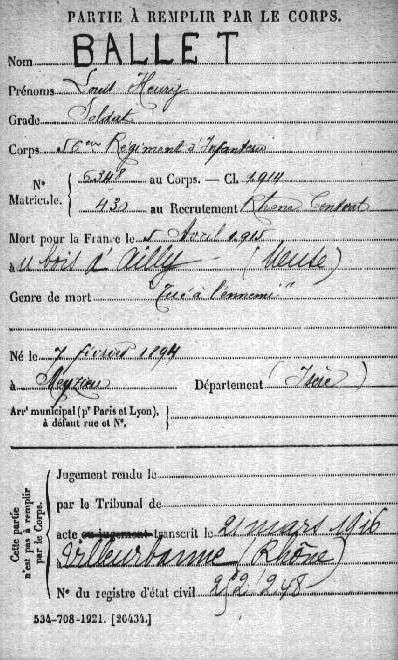 PARTIE À REMPLIR PAR LE CORPS.
Nom BALLET
Prénoms Louis Henry
Grade Soldat
Corps Régiment d'Infanterie
N° Matricule. { 6348 au Corps. — Cl. 1914
432 au Recrutement Rhône Central
Mort pour la France le 5 Avril 1915
à u bois d'Ailly (Meuse)
Genre de mort "Tué à l'ennemi"
Né le 7 février 1894
à Meyzieu Département (Isère)
Arr<sup>t</sup> municipal (p<sup>r</sup> Paris et Lyon), à défaut rue et N°. }
Cette partie n'est pas à remplir par le Corps. { Jugement rendu le
par le Tribunal de
acte ou jugement transcrit le 21 mars 1916
à Villeurbanne (Rhône)
N° du registre d'état civil
534-708-1921. [26434.]